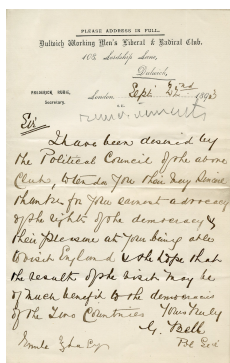 PLEASE ADDRESS IN FULL.
Dulwich Working Men's Liberal & Radical Club.
108, Lordship Lane,
Dulwich,
FREDERICK RUBIE,
Secretary.
London, Sept 22nd 1893
Sir
I have been desired by
the Political Council of the above
Club, to tender you their very sincere
thanks for your earnest advocacy
of the rights of the democracy &
their pleasure at your being able
to visit England & the hope that
the result of the visit may be
of much benefit to the democracies
of the two Countries
Yours truly
G. Bell
Emile Zola